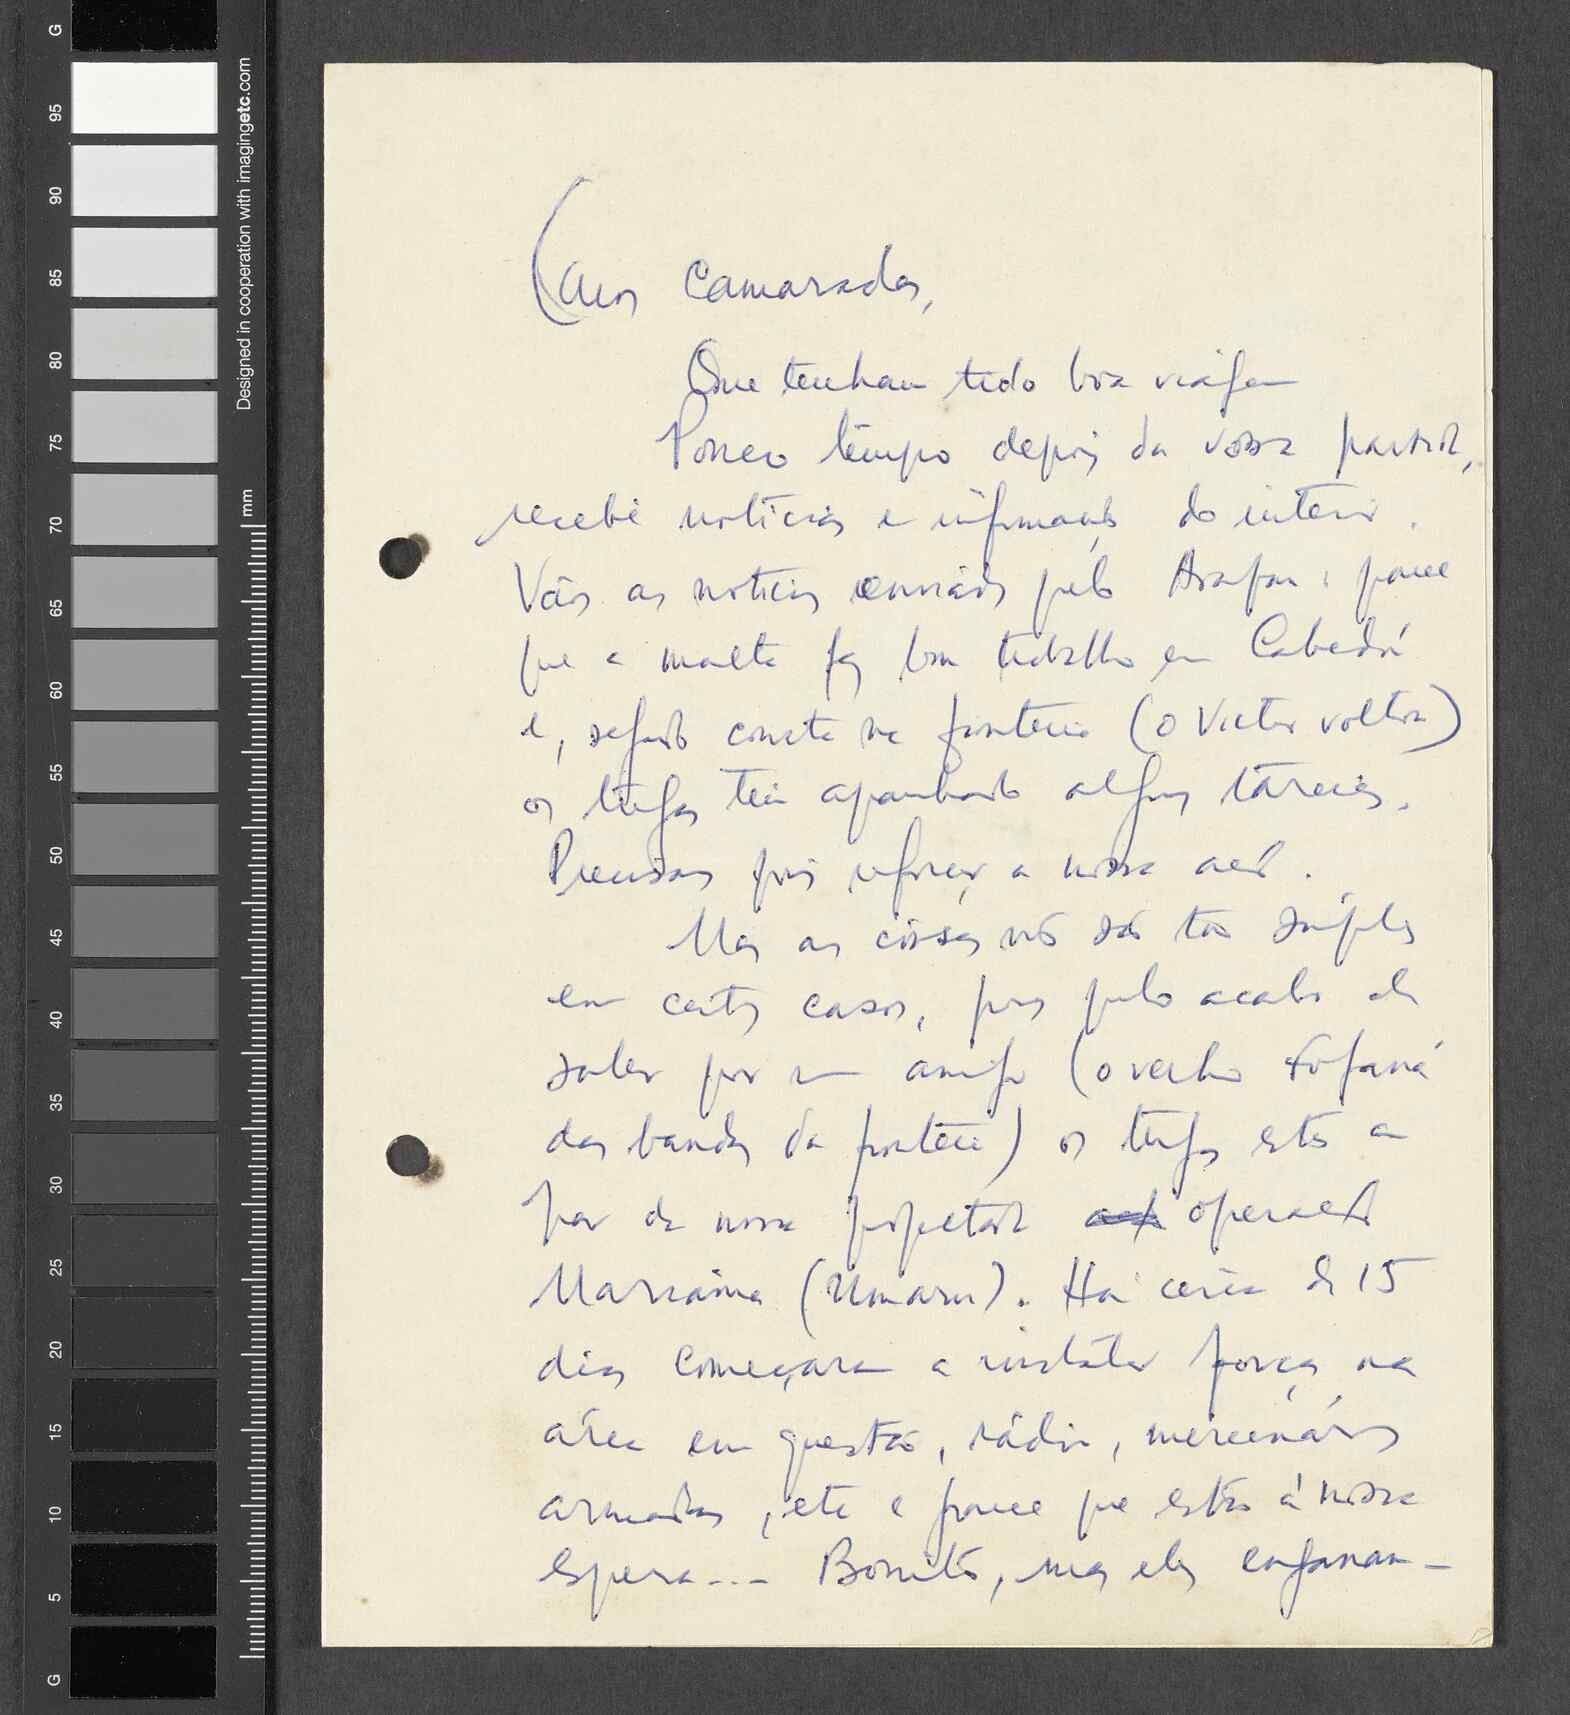 G
95
90
85
80
75
70
65
60
55
50
45
40
35
30
25
20
15
10
5
G
Designed in cooperation with imagingetc.com
mm
Caros Camaradas,
Que tenham tido boa viagem
Pouco tempo depois da vossa partida,
recebi notícias e informações do interior.
Vão as notícias enviadas pelo Arafan: parece
que a malta fez bom trabalho em Cabedú
e, segundo consta na fronteira (o Victor voltou)
os tugas têm apanhado algumas tareias.
Precisamos pois reforçar a nossa acção.
Mas as coisas não são tão simples
em certos casos, pois pelo acabo de
saber por um amigo (o velho Fofaná
das bandas da fronteira) os tugas estão a
par da nossa projectada operação
Mariama (Umaru). Há cerca de 15
dias começaram a instalar forças na
área em questão, rádio, mercenários
armados, etc e parece que estão à nossa
espera... Bonito, mas eles enganam-